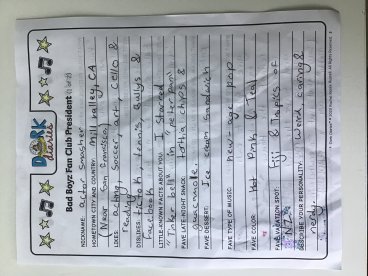 DORK
diaries
Bad Boyz Fan Club President (1 of 2)
NICKNAME: actor smasher
HOMETOWN CITY AND COUNTRY: Mill valley, CA
(Near San Francisco)
LIKES: acting, Soccer, art, Cello &
reading
DISLIKES: , tennis, bullys &
facebook
LITTLE-KNOWN FACTS ABOUT YOU: I starred
"Tinker bell" in "Peter pan"
FAVE LATE-NIGHT SNACK: tortia chips &
guacamole
FAVE DESSERT: Ice cream Sandwich
FAVE TYPE OF MUSIC: New-age pop
FAVE COLOR: Hot Pink & Teal
FAVE VACATION SPOT: Fiji & Naples
DESCRIBE YOUR PERSONALITY: Weird, caring &
nerdy